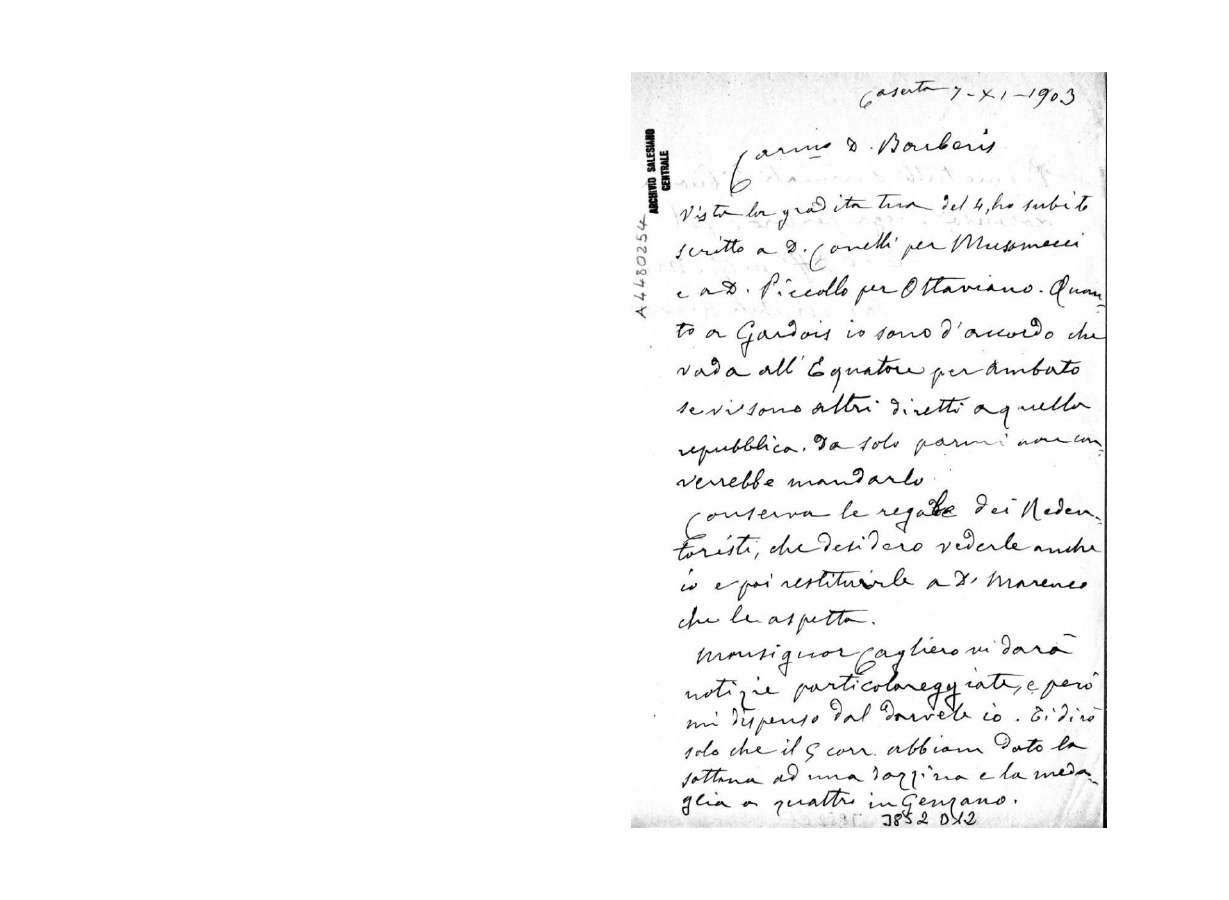 Caserta 7-XI-1903
Carmo D. Barberis
ARCHIVIO SALESIANO
CENTRALE
A4480254
Vista la gradita tua del 4, ho subito
scritto a D. Conelli per Musomeci
e a D. Piccollo per Ottaviano. Quan-
to a Gardois io sono d'accordo che
vada all'Equatore per Ambato
se vi sono altri diretti a quella
repubblica. Da solo parmi non con-
verrebbe mandarlo
Conserva le regole dei Reden-
toristi, che desidero vederle anche
io e poi restituirle a D. Marenco
che le aspetta.
Monsignor Cagliero vi darà
notizie particolareggiate, e però
mi dispenso dal darvele io. Ti dirò
solo che il 5 corr. abbiam dato la
sottana ad una dozzina e la meda-
glia a quattro in Genzano.
3852 D12